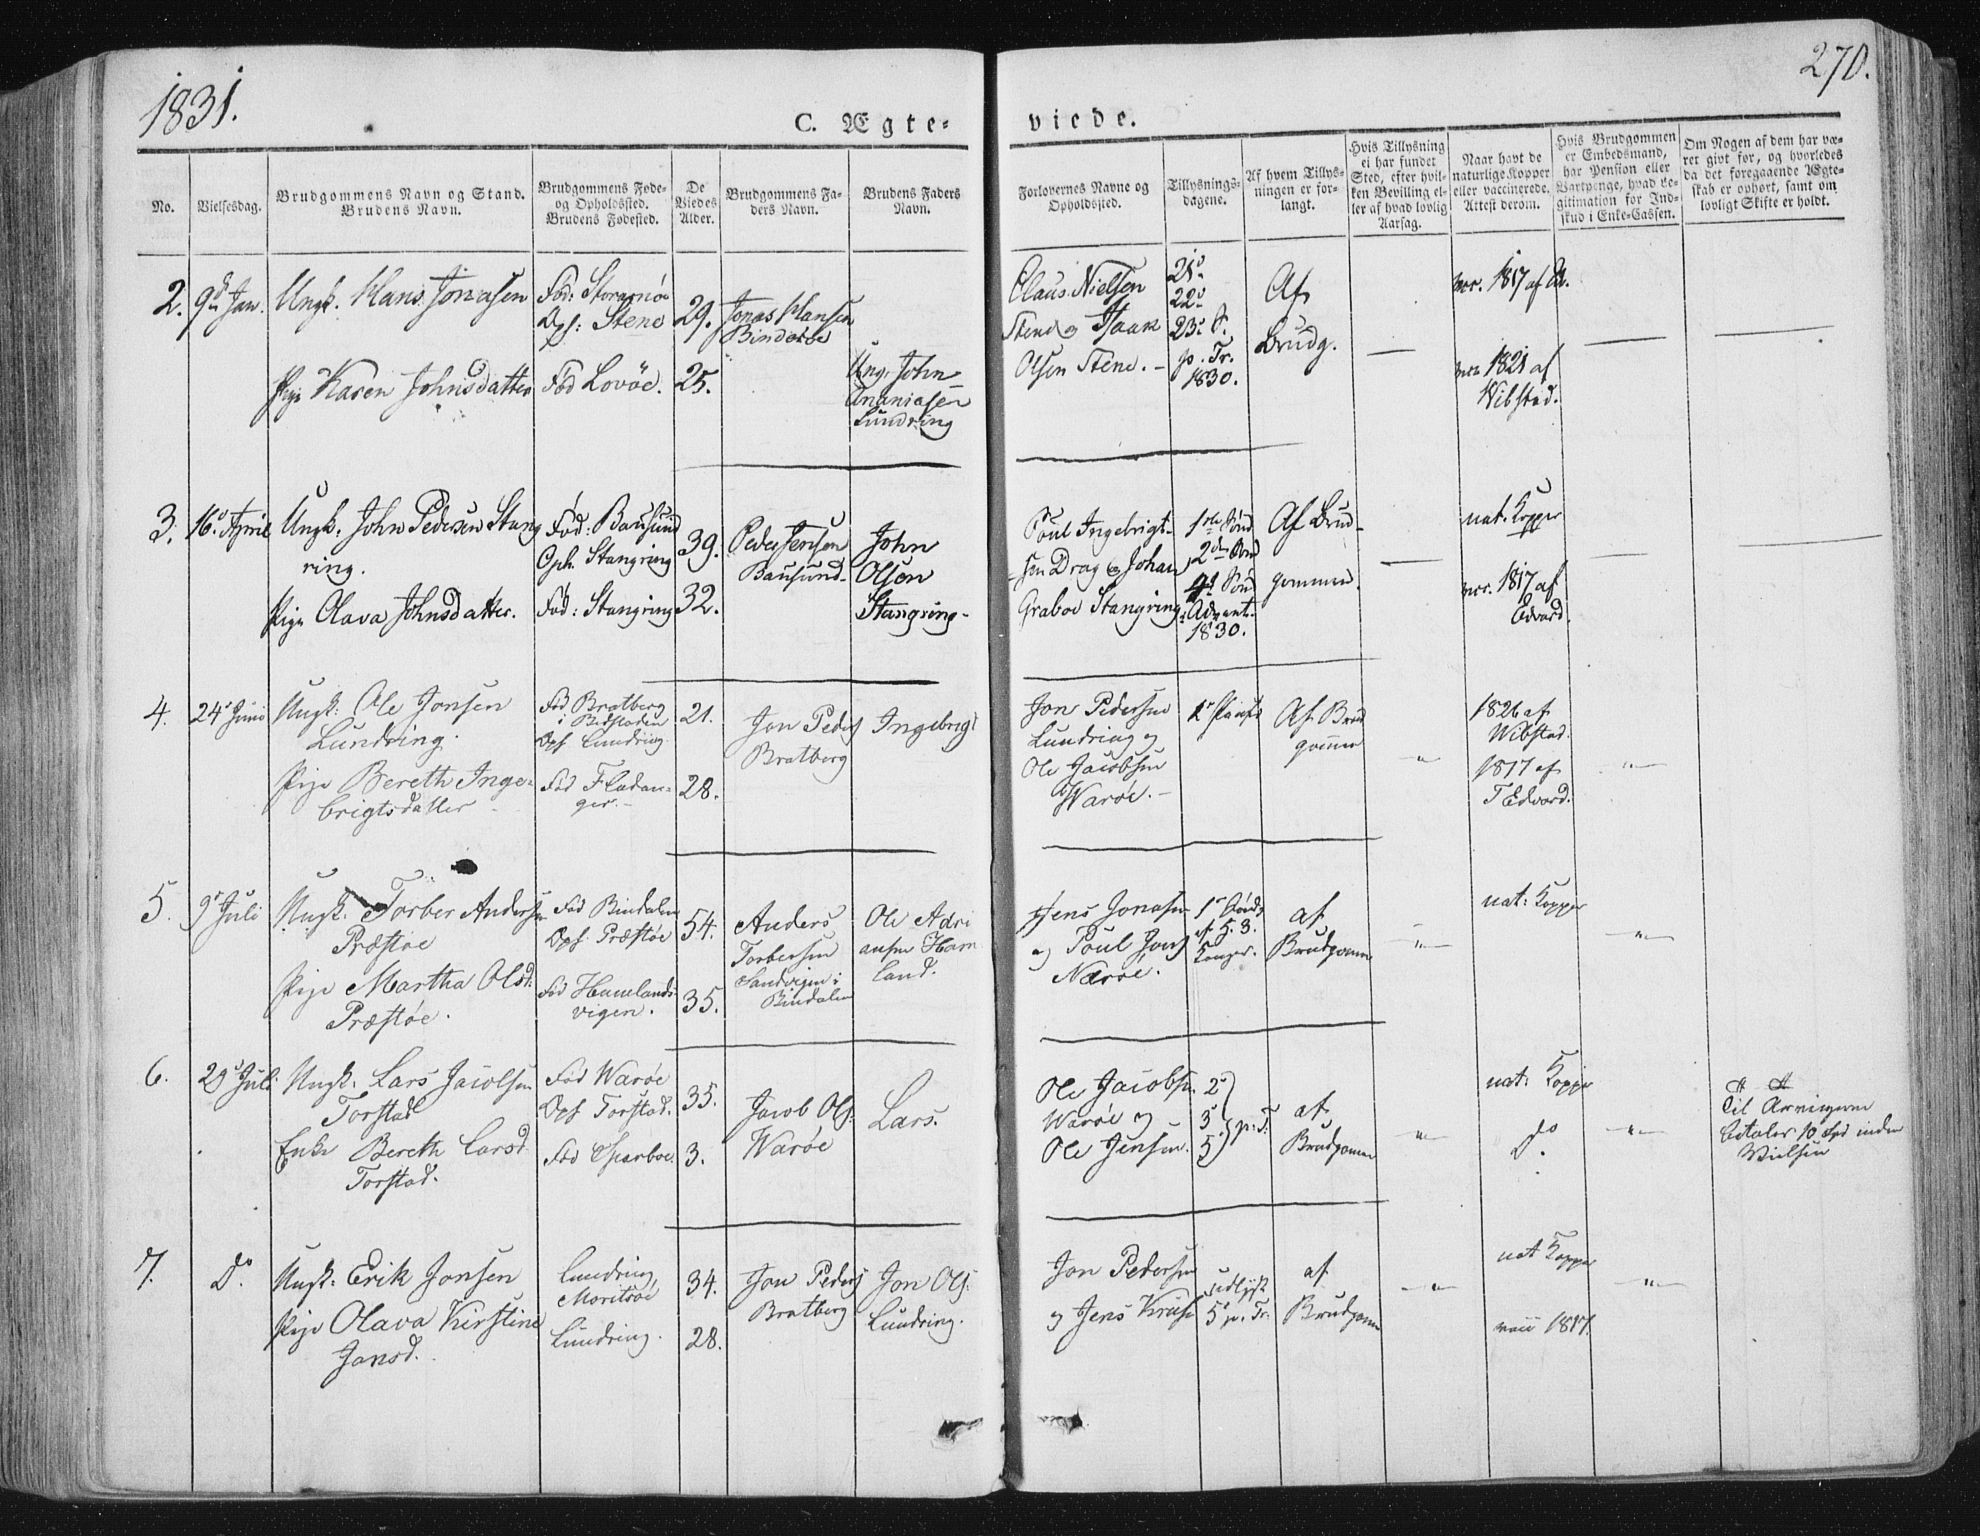 1831.
270.
C. Ægte-
viede.
No.
Vielsesdag.
Brudgommens Navn og Stand.
Brudens Navn.
Brudgommens Føde-
og Opholdssted.
Brudens Fødested.
De
Viedes
Alder.
Brudgommens Fa-
ders Navn.
Brudens Faders
Navn.
Forlovernes Navne og
Opholdssted.
Tillysnings-
dagene.
Af hvem Tillys-
ningen er for-
langt.
Hvis Tillysning
ei har fundet
Sted, efter hvil-
ken Bevilling el-
ler af hvad lovlig
Aarsag.
Naar havt de
naturlige Kopper
eller vaccinerede.
Attest derom.
Hvis Brudgommen
er Embedsmand,
har Pension eller
Vartpenge, hvad Le-
gitimation for Ind-
skud i Enke-Cassen.
Om Nogen af dem har væ-
ret givt før, og hvorledes
da det foregaaende Ægte-
skab er ophørt, samt om
lovligt Skifte er holdt.
2.
9d Jan.
Ungk. Hans Jonasen
Pige Karen Johnsdatter
Fød: Storøenøe
Oph: Stene
Fød Lovöe.
29.
25.
Jonas Hansen
Binderöe
Ung. John
Ananiasen
Lundring
Claus Nielsen
Stene og Isaak
Olsen Stene. -
21d
22d
23d S.
p. Tr.
1830.
Af
Brudg.
vac. 1817 af Ed.
vac 1821 af
Wibstad.
3.
16d April
Ungk. John Pedersen Stang
ring.
Pige Olava Johnsdatter.
Fød: Bausund
Oph. Stangring
Fød: Stangring
39.
32.
Peder Jensen
Bausund-
John
Olsen
Stangring-
Poul Ingebrigt-
sen Drag og Johan
Graboe Stangring
1ste Sönd
2den Sönd
4d Sönd
Advent
1830.
Af Brud-
gommen.
nat. Kopper
vac. 1817 af
Edvard.
4.
24d Juni
Ungk: Ole Jonsen
Lundring.
Pige Bereth Inge-
brigtsdatter
Fød Bratberg
i Bidstaden
Oph. Lundring
Fød Fladan-
ger. -
21.
28.
Jon Peders
Bratberg
Ingebrigt
Jon Pedersen
Lundring og
Ole Jacobsen
Waröe. -
Af Brud
gommen
1826 af
Wibstad.
1817 af
T Edvard.
5.
9d Juli
Ungk: Torber Andersen
Præstöe
Pige Martha Olsd:
Præstöe.
Fød Bindalen
Oph. Præstöe
Fød Hamlands-
vigen.
54.
35.
Anders
Torbersen
Sandvigen i
Bindalen
Ole Adri
ansen Ham
land.
Jens Jonasen
og Poul Jons
Næröe.
af
Brudgommen
nat: Kopper
6.
29d Juli
Ungk: Lars Jacobsen
Torstad
Enke Bereth Larsd
Torstad.
Fød Waröe
Oph Torstad.
Fød Sparboe
35.
3.
Jacob Ols.
Waröe
Lars.
Ole Jacobsen
Waröe og
Ole Jensen.
2d
3d
5d
p. T.
af
Brudgommen
nat: Kopper
Do.
Til Arvingerne
betaler 10 Spd inden
Vielsen
7.
Do.
Ungk: Erik Jonsen
Pige Olava Kirstine
Jonsd.
Lundring,
Moritsöe
Lundring.
34.
28.
Jon Peders
Bratberg
Jon Ols.
Lundring.
Jon Pedersen
og Jens Kruse
udlyst
5d p. Tr.
af
Brudgommen
nat Kopper
vacc 1817.